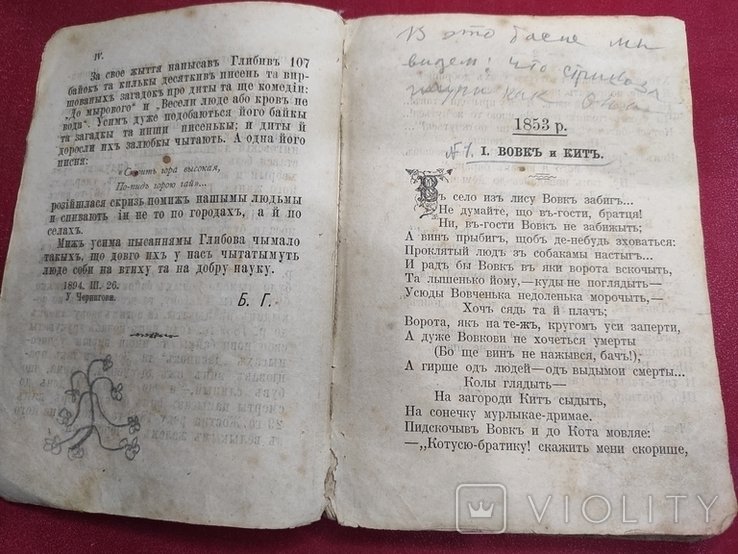 IV.
За свое жыття напысав Глибив 107
байок та килькы десяткив писень та вир-
шованых загадок про диты та ще комедій:
„До мырового" и „Весели люде або кровъ не
вода". Усим дуже подобаються його байкы
та загадкы та инши писенькы; и диты й
доросли их залюбкы чытають. А одна його
писня:
«Стоить гора высокая,
По-пидъ горою гай»...
розійшлася скризь помиж нашымы людьмы
и спивають ін не то по городах, а й по
селах.
Миж усима пысаннямы Глибова чымало
такых, що довго их у нас чытатымуть
люде соби на втиху та на добру науку.
1894. III. 26.
У Чернигови.
Б. Г.
В это басне мы
видем: что
как
1853 р.
№ 1.
I. ВОВКЪ и КИТЪ.
Въ село изъ лису Вовк забигъ...
Не думайте, що въ-гости, братця!
Ни, въ-гости Вовк не забижыть;
А винъ прыбигъ, щобъ де-небудь зховаться:
Проклятый людъ зъ собакамы настыгъ...
И радъ бы Вовкъ въ яки ворота вскочыть,
Та лышенько йому,—куды не поглядыть—
Усюды Вовченька недоленька морочыть,—
Хочъ сядь та й плачъ;
Ворота, якъ на те-жъ, кругомъ уси заперти,
А дуже Вовкови не хочеться умерты
(Бо ще винъ не нажывся, бачъ!);
А гирше одъ людей—одъ выдымои смерты...
Колы глядыть—
На загороди Китъ сыдыть,
На сонечку мурлыкае-дримае.
Пидскочывъ Вовкъ и до Кота мовляе:
—„Котусю-братику! скажить мени скорише,
VIOLITY